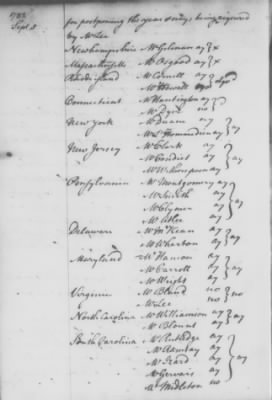 1782
Sept. 5
for postponing the yeas & nays being required
by Mr Lee
Newhampshire Mr Gilman ay } x
Massachusetts Mr Osgood ay } x
Rhodeisland Mr Cornell ay
Mr Howell
Connecticut Mr Huntington ay
Mr Dyer no
New York Mr Duane ay } ay
Mr L'Hommedieu ay
New Jersey Mr Clark ay
Mr Condict ay } ay
Mr Witherspoon ay
Pensylvania Mr Montgomery ay
Mr Smith ay } ay
Mr Clymer ay
Mr Atlee ay
Delaware Mr McKean ay } ay
Mr Wharton ay
Maryland Mr Hanson ay
Mr Carroll ay } ay
Mr Wright ay
Virginia Mr Bland no } no
Mr Lee no
North Carolina Mr Williamson ay } ay
Mr Blount ay
South Carolina Mr Rutledge ay
Mr Ramsay ay
Mr Izard ay } ay
Mr Gervais ay
Mr Midleton no